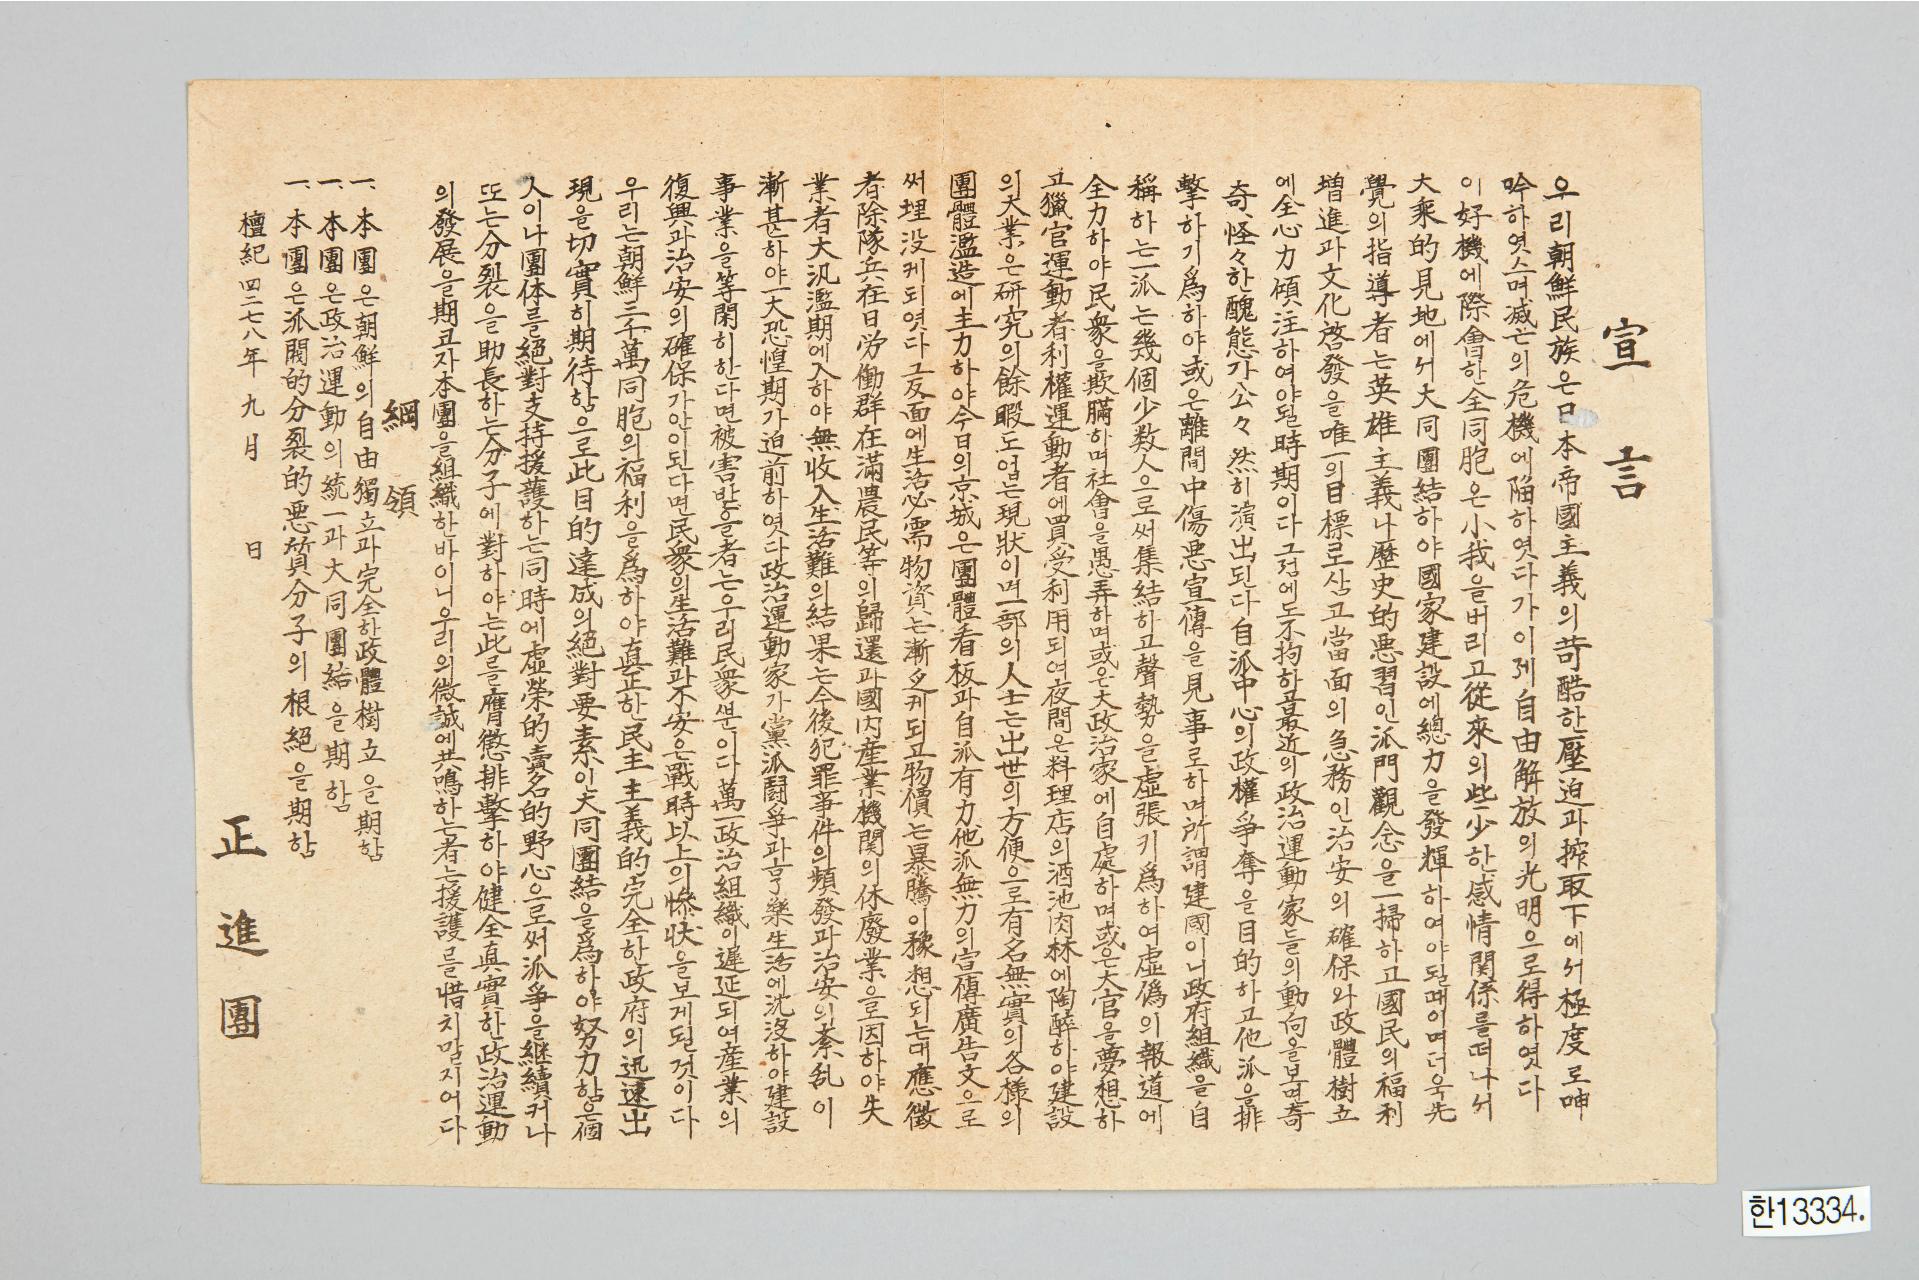 宣言
우리朝鮮民族은日本帝國主義의苛酷한壓迫과搾取下에서極度로呻
吟하엿스며滅亡의危機에陷하엿다가이제自由解放의光明으로得하엿다
이好機에際會한全同胞은小我을버리고從來의些少한感情関係를떠나서
大乘的見地에서大同團結하야國家建設에總力을發輝하여야될때이며더욱先
覺의指導者는英雄主義나歷史的悪習인派門觀念을一掃하고國民의福利
增進과文化啓發을唯一의目標로삼고當面의急務인治安의確保와政體樹立
에全心力傾注하여야될時期이다그점에도不拘하고最近의政治運動家들의動向을보면奇
奇怪々한醜態가公々然히演出된다自派中心의政權爭奪을目的하고他派을排
擊하기爲하야或은離間中傷悪宣傳을見事로하며所謂建國이니政府組織을自
稱하는一派는幾個少数人으로써集結하고聲勢을虛張키爲하여虛偽의報道에
全力하야民衆을欺瞞하며社會을愚弄하며或은大政治家에自處하며或은大官을夢想하
고獵官運動者利權運動者에買受利用되여夜間은料理店의酒池肉林에陶醉하야建設
의大業은研究의餘暇도업는現状이며一部의人士는出世의方便으로有名無實의各樣의
團體濫造에主力하야今日의京城은團體看板과自派有力他派無力의宣傳廣告文으로
써埋没케되엿다그反面에生活必需物資는漸乏케되고物價는暴騰이豫想되는대應徵
者除隊兵在日労働群在滿農民等의歸還과國內産業機関의休廢業으로因하야失
業者大汎濫期에入하야無收入生活難의結果는今後犯罪事件의頻發과治安의紊乱이
漸甚하야一大恐惶期가迫前하엿다政治運動家가黨派鬪爭과享樂生活에沈沒하야建設
事業을等閑히하다면被害받을者는우리民衆뿐이다萬一政治組織이遲延되여産業의
復興과治安의確保가안이된다면民衆의生活難과不安은戰時以上의惨状을보게될것이다
우리는朝鮮三千萬同胞의福利을爲하야真正한民主主義的完全한政府의迅速出
現을切實히期待함으로此目的達成의絕對要素인大同團結을爲하야努力함은個
人이나團体를絕對支持援護하는同時에虛榮的賣名的野心으로써派爭을継續커나
또는分裂을助長하는分子에對하야는此를膺懲排擊하야健全真實한政治運動
의發展을期코자本團을組織한바이니우리의微誠에共鳴하는者는援護를惜치말지어다
綱領
一、本團은朝鮮의自由獨立과完全한政體樹立을期함
一、本團은政治運動의統一과大同團結을期함
一、本團은派閥的分裂的悪質分子의根絕을期함
檀紀四二七八年九月 日
正進團
한13334.